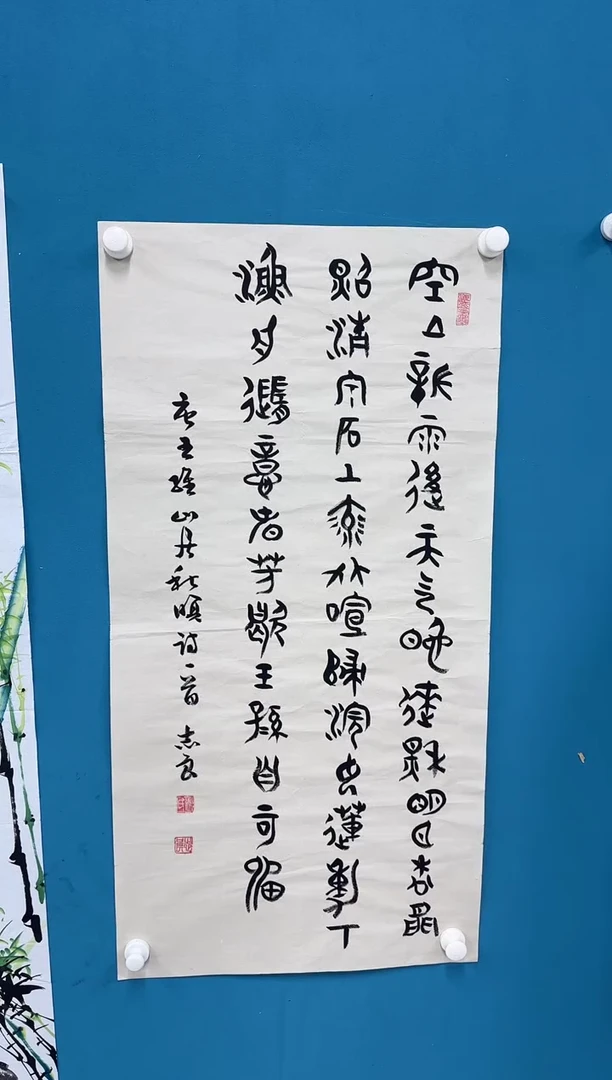 空山新雨後天气晚逨秋明月松閒
照清泉石上流竹喧歸浣女蓮動下
漁舟隨意春芳歇王孫自可留
唐王維山居秋暝詩一首 志良